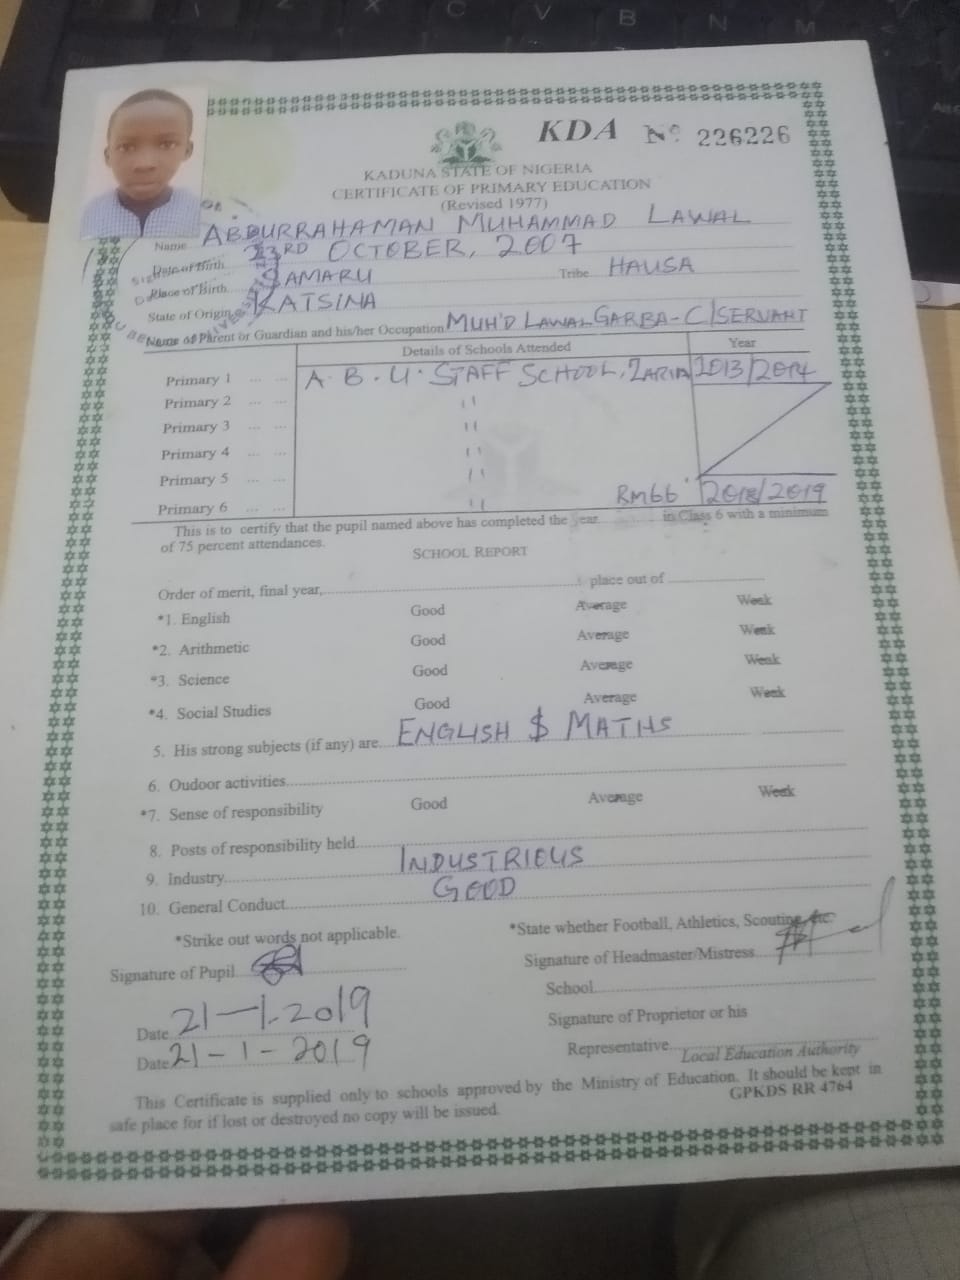 KDA No 226226
KADUNA STATE OF NIGERIA
CERTIFICATE OF PRIMARY EDUCATION
(Revised 1977)
Name ABDURRAHAMAN MUHAMMAD LAWAL
Date of Birth 23RD OCTOBER, 2007
Place of Birth SAMARU Tribe HAUSA
State of Origin KATSINA
Name of Parent or Guardian and his/her Occupation MUH'D LAWAL GARBA-C/SERVANT
Details of Schools Attended Year
Primary 1 ... ... A.B.U. STAFF SCHOOL, ZARIA 2013/2014
Primary 2 ... ... "
Primary 3 ... ... "
Primary 4 ... ... "
Primary 5 ... ... "
Primary 6 ... ... " RM66 2018/2019
This is to certify that the pupil named above has completed the year in Class 6 with a minimum
of 75 percent attendances.
SCHOOL REPORT
Order of merit, final year, place out of
*1. English Good Average Weak
*2. Arithmetic Good Average Weak
*3. Science Good Average Weak
*4. Social Studies Good Average Weak
5. His strong subjects (if any) are ENGLISH $ MATHS
6. Oudoor activities
*7. Sense of responsibility Good Average Week
8. Posts of responsibility held
9. Industry INDUSTRIOUS
10. General Conduct GOOD
*Strike out words not applicable. *State whether Football, Athletics, Scouting, etc.
Signature of Pupil Signature of Headmaster/Mistress
School
Date 21-1-2019 Signature of Proprietor or his
Date 21-1-2019 Representative
Local Education Authority
This Certificate is supplied only to schools approved by the Ministry of Education. It should be kept in
safe place for if lost or destroyed no copy will be issued. GPKDS RR 4764